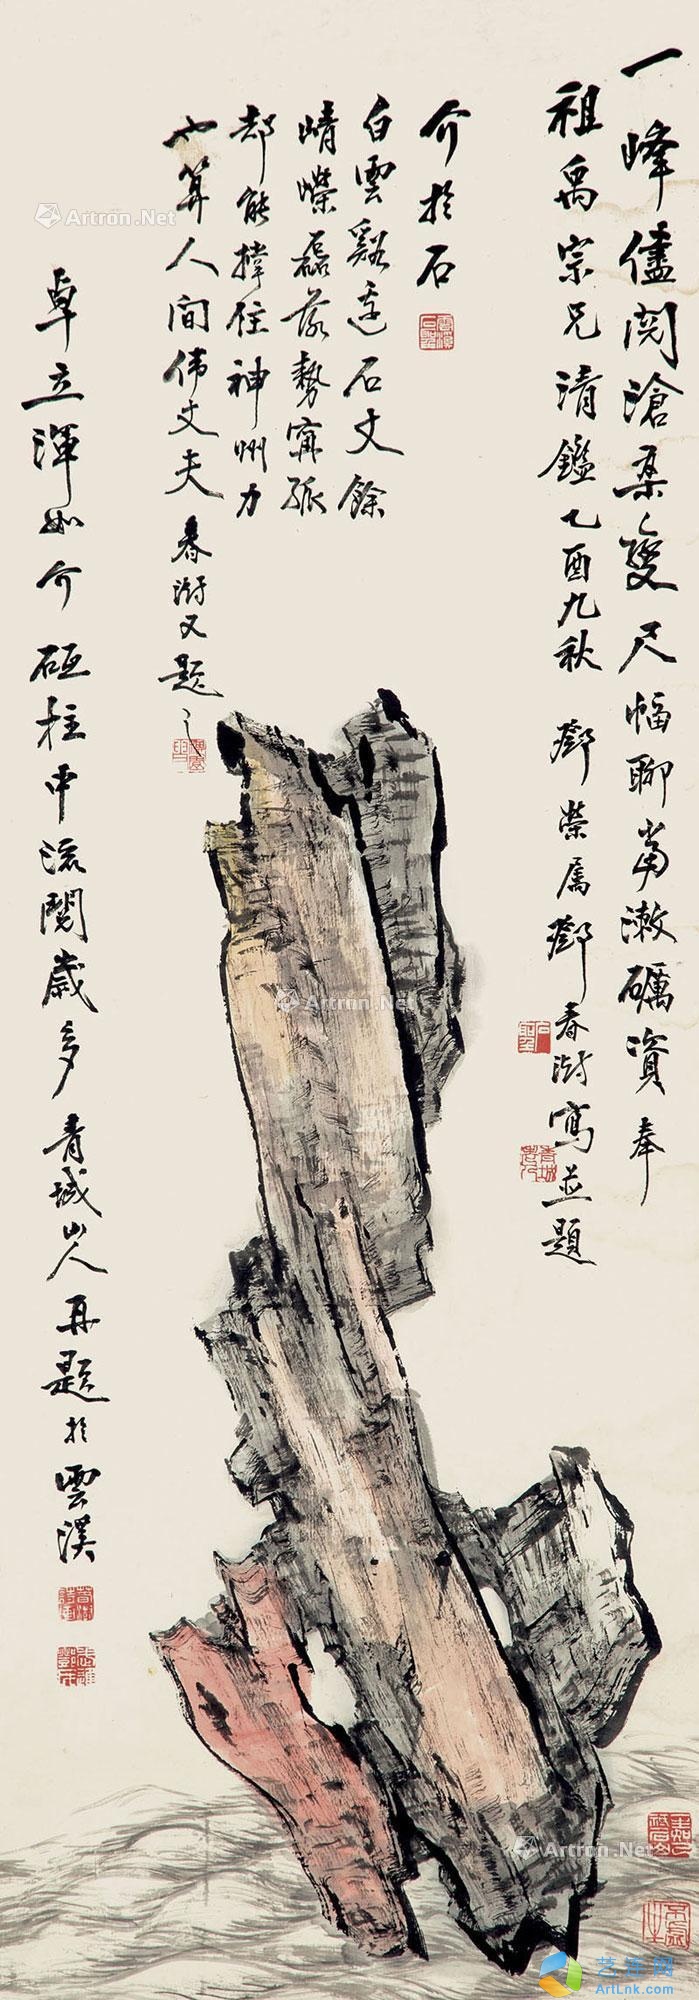 一峰儘閱滄桑變尺幅聊當漱礪資奉
祖禹宗兄清鑑乙酉九秋 鄧榮属鄧春澍寫並題
介於石
白雲谿邊石丈餘
崝嶸磊落勢寧孤
却能撑住神州力
也算人間伟丈夫 春澍又題
卓立渾如介 砥柱中流閱歲多 青城山人再題於雲溪
Artron.Net
Artron.Net
Artron.Net
Artron.Net
艺连网
ArtLnk.com